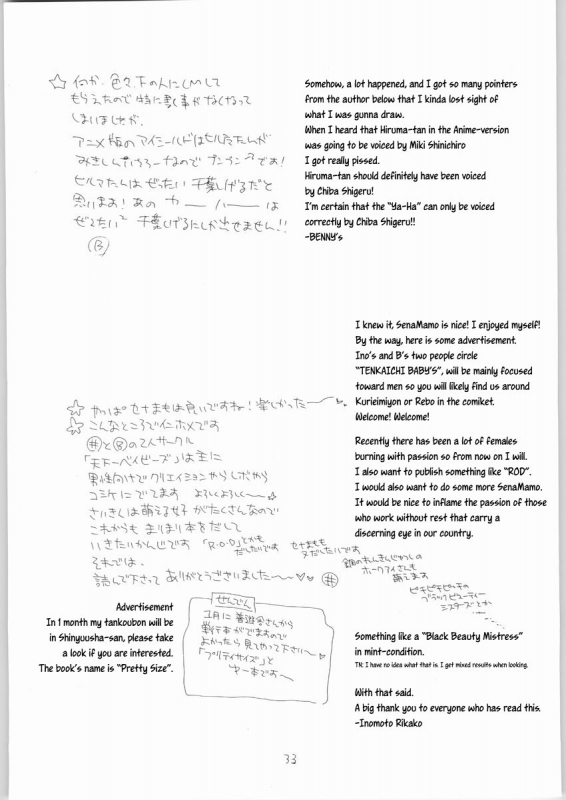 ☆ 何か、色々、下の人にCMして
もらえたので特に書く事がなくなって
しまいましたが、
アニメ版のアイシールドはヒルマたんが
です!
ヒルマたんはぜったい 千葉しげるだと
思います! あの ヤーハーは
ぜったい 千葉しげるにしか出せません!!
B
Somehow, a lot happened, and I got so many pointers
from the author below that I kinda lost sight of
what I was gunna draw.
When I heard that Hiruma-tan in the Anime-version
was going to be voiced by Miki Shinichiro
I got really pissed.
Hiruma-tan should definitely have been voiced
by Chiba Shigeru!
I'm certain that the "Ya-Ha" can only be voiced
correctly by Chiba Shigeru!!
-BENNY's
I knew it, SenaMamo is nice! I enjoyed myself!
By the way, here is some advertisement.
Ino's and B's two people circle
"TENKAICHI BABY'S", will be mainly focused
toward men so you will likely find us around
Kurieimiyon or Rebo in the comiket.
Welcome! Welcome!
Recently there has been a lot of females
burning with passion so from now on I will.
I also want to publish something like "ROD".
I would also want to do some more SenaMamo.
It would be nice to inflame the passion of those
who work without rest that carry a
discerning eye in our country.
☆ やっぱセナまもは良いですね! 楽しかったー
☆ こんなところで
井とBの2人サークル
「天下一ベイビーズ」は主に
男性向けでクリエイションやらレボやら
コミケにでてます よろしくよろしくー
さいきんは萌える女子がたくさんなので
これからも まりまり本をだして
いきたいかんじです 「R.O.D」とかも
だしたいです セナまもも
又だしたいです
鋼のれんきんじゅつしの
ホークアイさんも
萌えます
ピチピチピッチの
ブラックビューティー
シスターズとか
それでは、
読んで下さって ありがとうございましたー♡♡ 井
せんでん
1月に 善遊舎さんから
単行本がでますので
よかったら見てやって下さいー
「プリティサイズ」と
ゆー本ですー
Advertisement
In 1 month my tankoubon will be
in Shinyuusha-san, please take
a look if you are interested.
The book's name is "Pretty Size".
Something like a "Black Beauty Mistress"
in mint-condition.
TN: I have no idea what that is. I get mixed results when looking.
With that said.
A big thank you to everyone who has read this.
-Inomoto Rikako
33